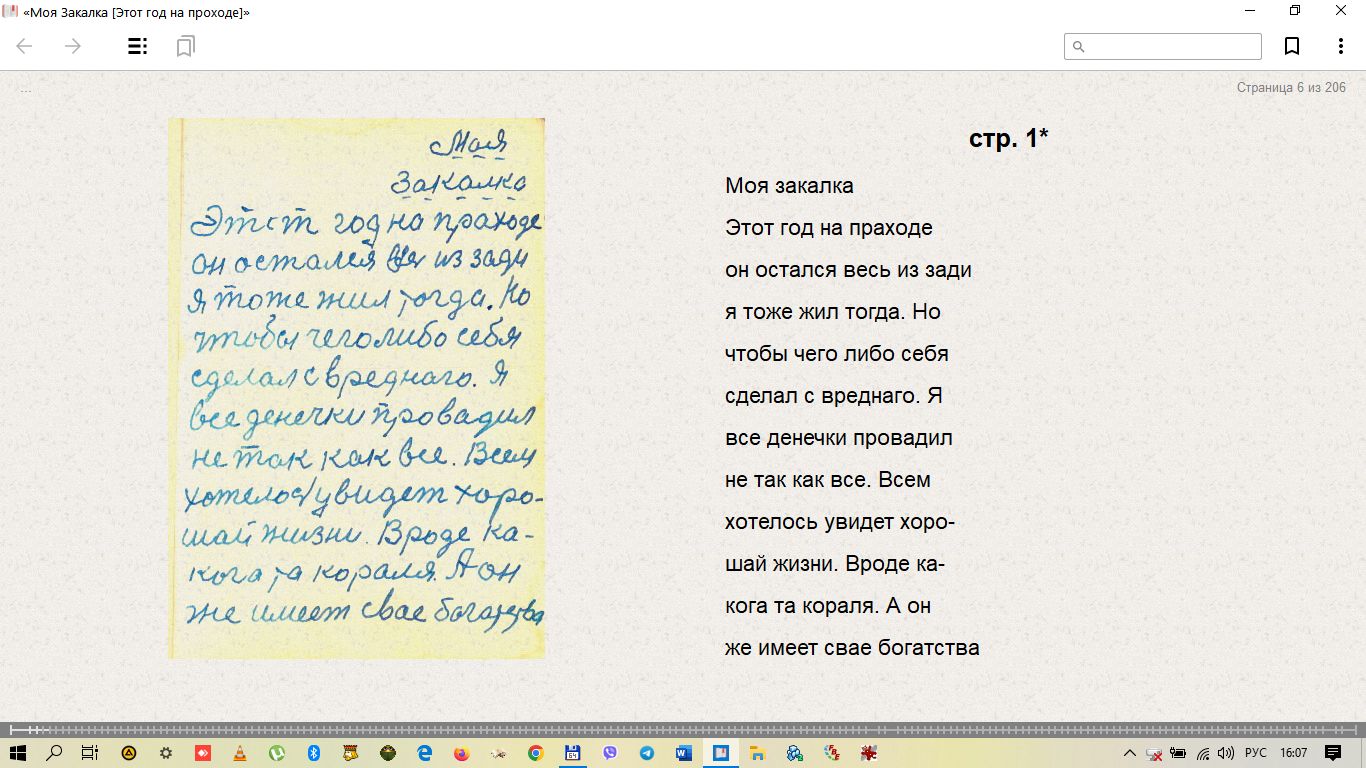 «Моя Закалка [Этот год на проходе]»
...
Страница 6 из 206
Моя
Закалка
Этот год на праходе
он остался весь из зади
я тоже жил тогда. Но
чтобы чего либо себя
сделал с вреднаго. Я
все денечки провадил
не так как все. Всем
хотелось увидет хоро-
шай жизни. Вроде ка-
кога та кораля. А он
же имеет свае богатства
стр. 1*
Моя закалка
Этот год на праходе
он остался весь из зади
я тоже жил тогда. Но
чтобы чего либо себя
сделал с вреднаго. Я
все денечки провадил
не так как все. Всем
хотелось увидет хоро-
шай жизни. Вроде ка-
кога та кораля. А он
же имеет свае богатства
РУС 16:07